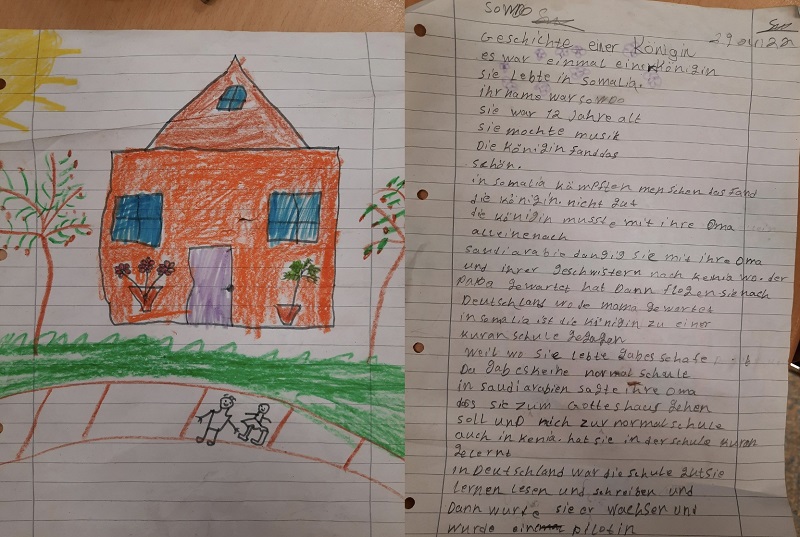 SOWDO
Geschichte einer Königin
es war einmal eine Königin
sie lebte in Somalia.
ihr name war sowdo
sie war 12 jahre alt
sie mochte musik
Die Königin fand das
schön.
in somalia kämpften menschen das fand
die königin nicht gut
die königin musste mit ihre oma
alleine nach
saudiarabia dan gig sie mit ihre oma
und ihrer geschwistern nach kenia wo der
papa gewartet hat Dann flegen sie nach
Deutschland wo de mama gewartet
in somalia ist die königin zu einer
kuran schule gegagen
weil wo sie lebte gab es schafe
Da gab es keihe normal schule
in saudiarabien sagte ihre oma
das sie zum Gotteshaus gehen
soll und nich zur normal schule
auch in kenia. hat sie in der schule kuran
gelernt
in Deutschland war die schule gut sie
lernen lesen und schreiben und
Dann wurde sie er wachsen und
wurde eine pilotin